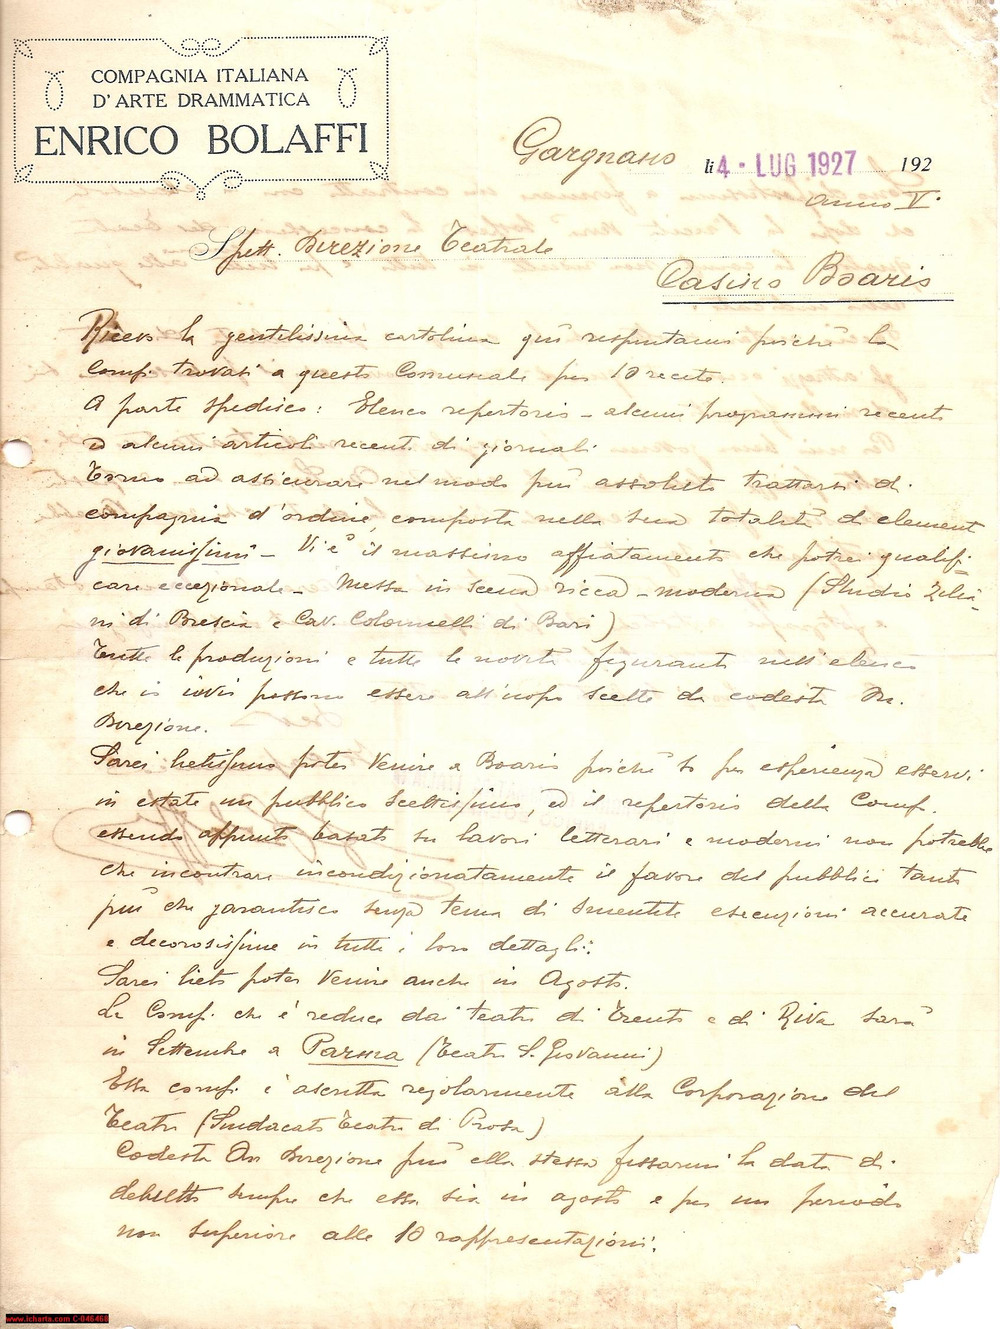 COMPAGNIA ITALIANA
D'ARTE DRAMMATICA
ENRICO BOLAFFI
Gargnano li 4 - LUG 1927 192
Anno V°
Spett. Direzione Teatrale
Casino Boario
Ricevo la gentilissima cartolina qui respintami poichè la
Comp. trovasi a questo Comunale per 10 recite.
A parte spedisco: Elenco repertorio - alcuni programmi recenti
e alcuni articoli recenti di giornali.
Tengo ad assicurare nel modo più assoluto trattarsi di
compagnia d'ordine, composta nella sua totalità di elementi
giovanissimi - Vi è il massimo affiatamento che potrei qualifi-
care eccezionale - Messa in scena ricca - moderna (Studio Zilia-
ni di Brescia e Cav. Colonnelli di Bari)
Tutte le produzioni e tutte le novità figuranti nell'elenco
che io invio possono essere all'uopo scelte da codesta On.
Direzione.
Sarei lietissimo poter venire a Boario poichè so per esperienza esservi
in estate un pubblico sceltissimo, ed il repertorio della Comp.
essendo appunto basato su lavori letterari e moderni non potrebbe
che incontrare incondizionatamente il favore del pubblico tanto
più che garantisco senza tema di smentite esecuzioni accurate
e decorosissime in tutti i loro dettagli.
Sarei lieto poter venire anche in Agosto.
La Comp. che è reduce dai teatri di Trento e di Riva sarà
in Settembre a Parma (Teatro S. Giovanni)
Essa comp. è ascritta regolarmente alla Corporazione del
Teatro (Sindacato Teatri di Prosa)
Codesta On Direzione può ella stessa fissarmi la data di
debutto sempre che essa sia in agosto e per un periodo
non superiore alle 10 rappresentazioni.
www.icharta.com C-046468